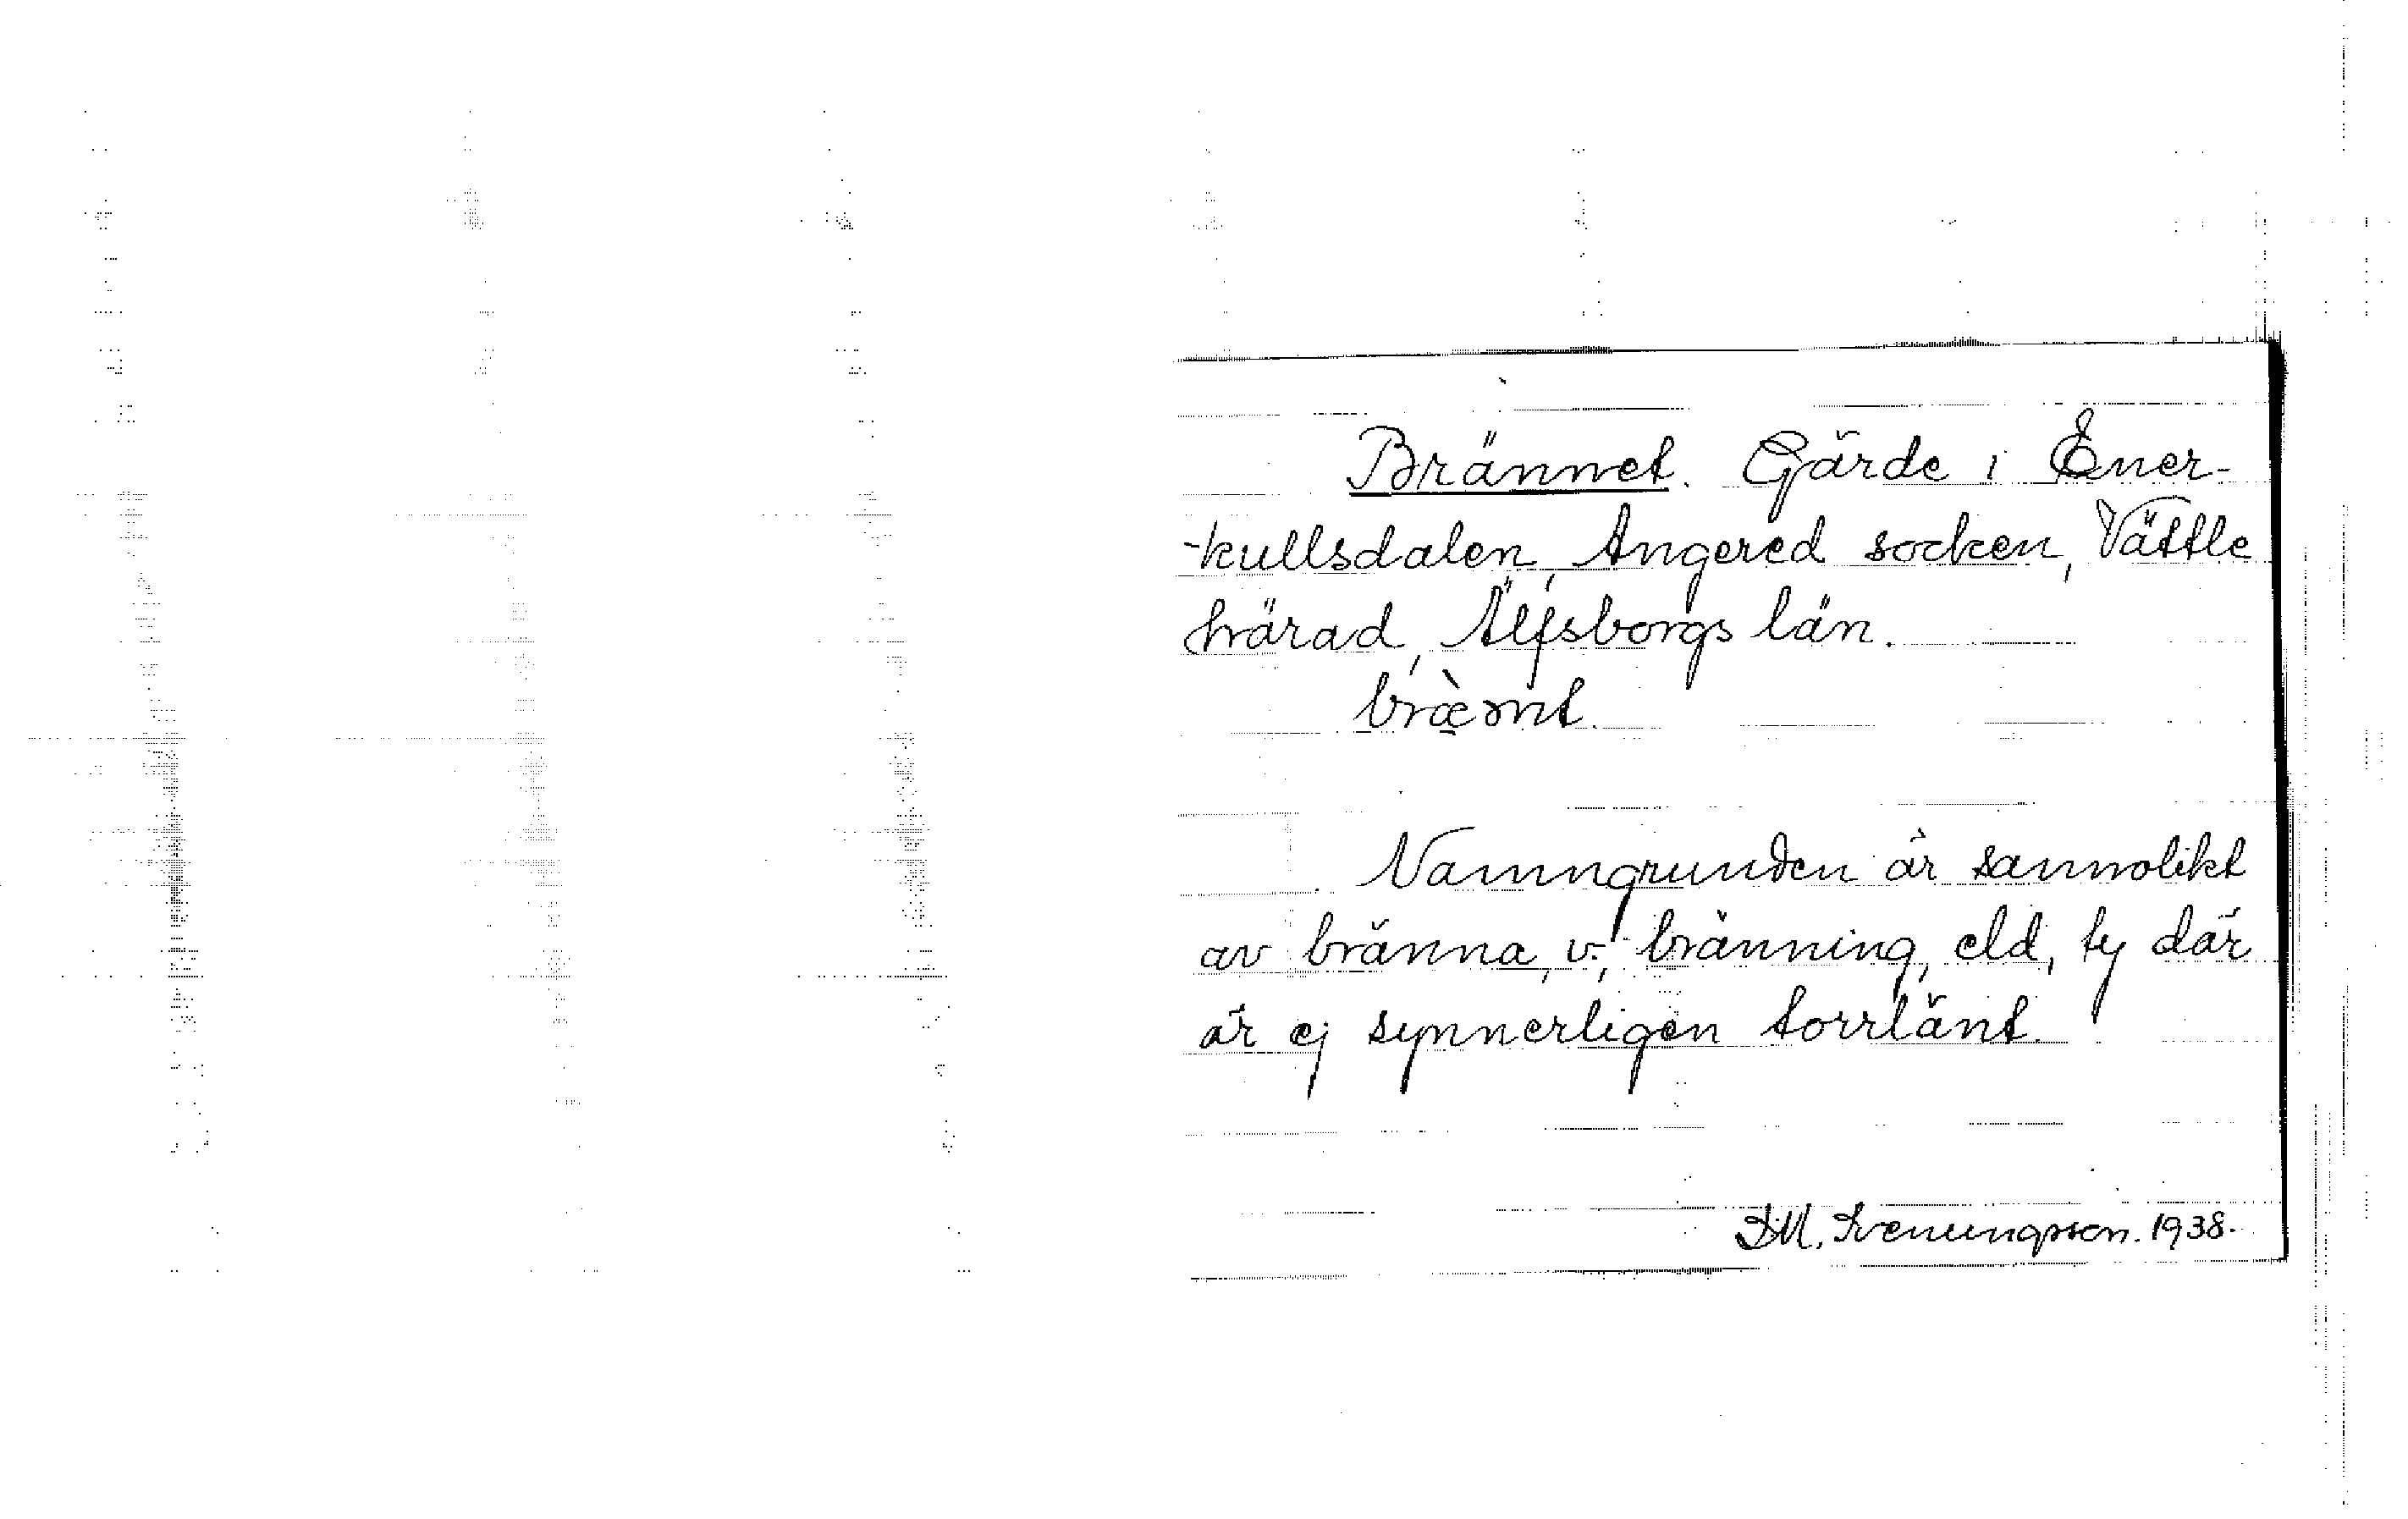 Brännet. Gärde i Ener-
-kullsdalen, Angered socken, Vättle
härad, Älfsborgs län.
Namngrunden är sannolikt
av bränna, v., bränning, eld, ty där
är ej synnerligen torrlänt.
Svenungsson. 1938.